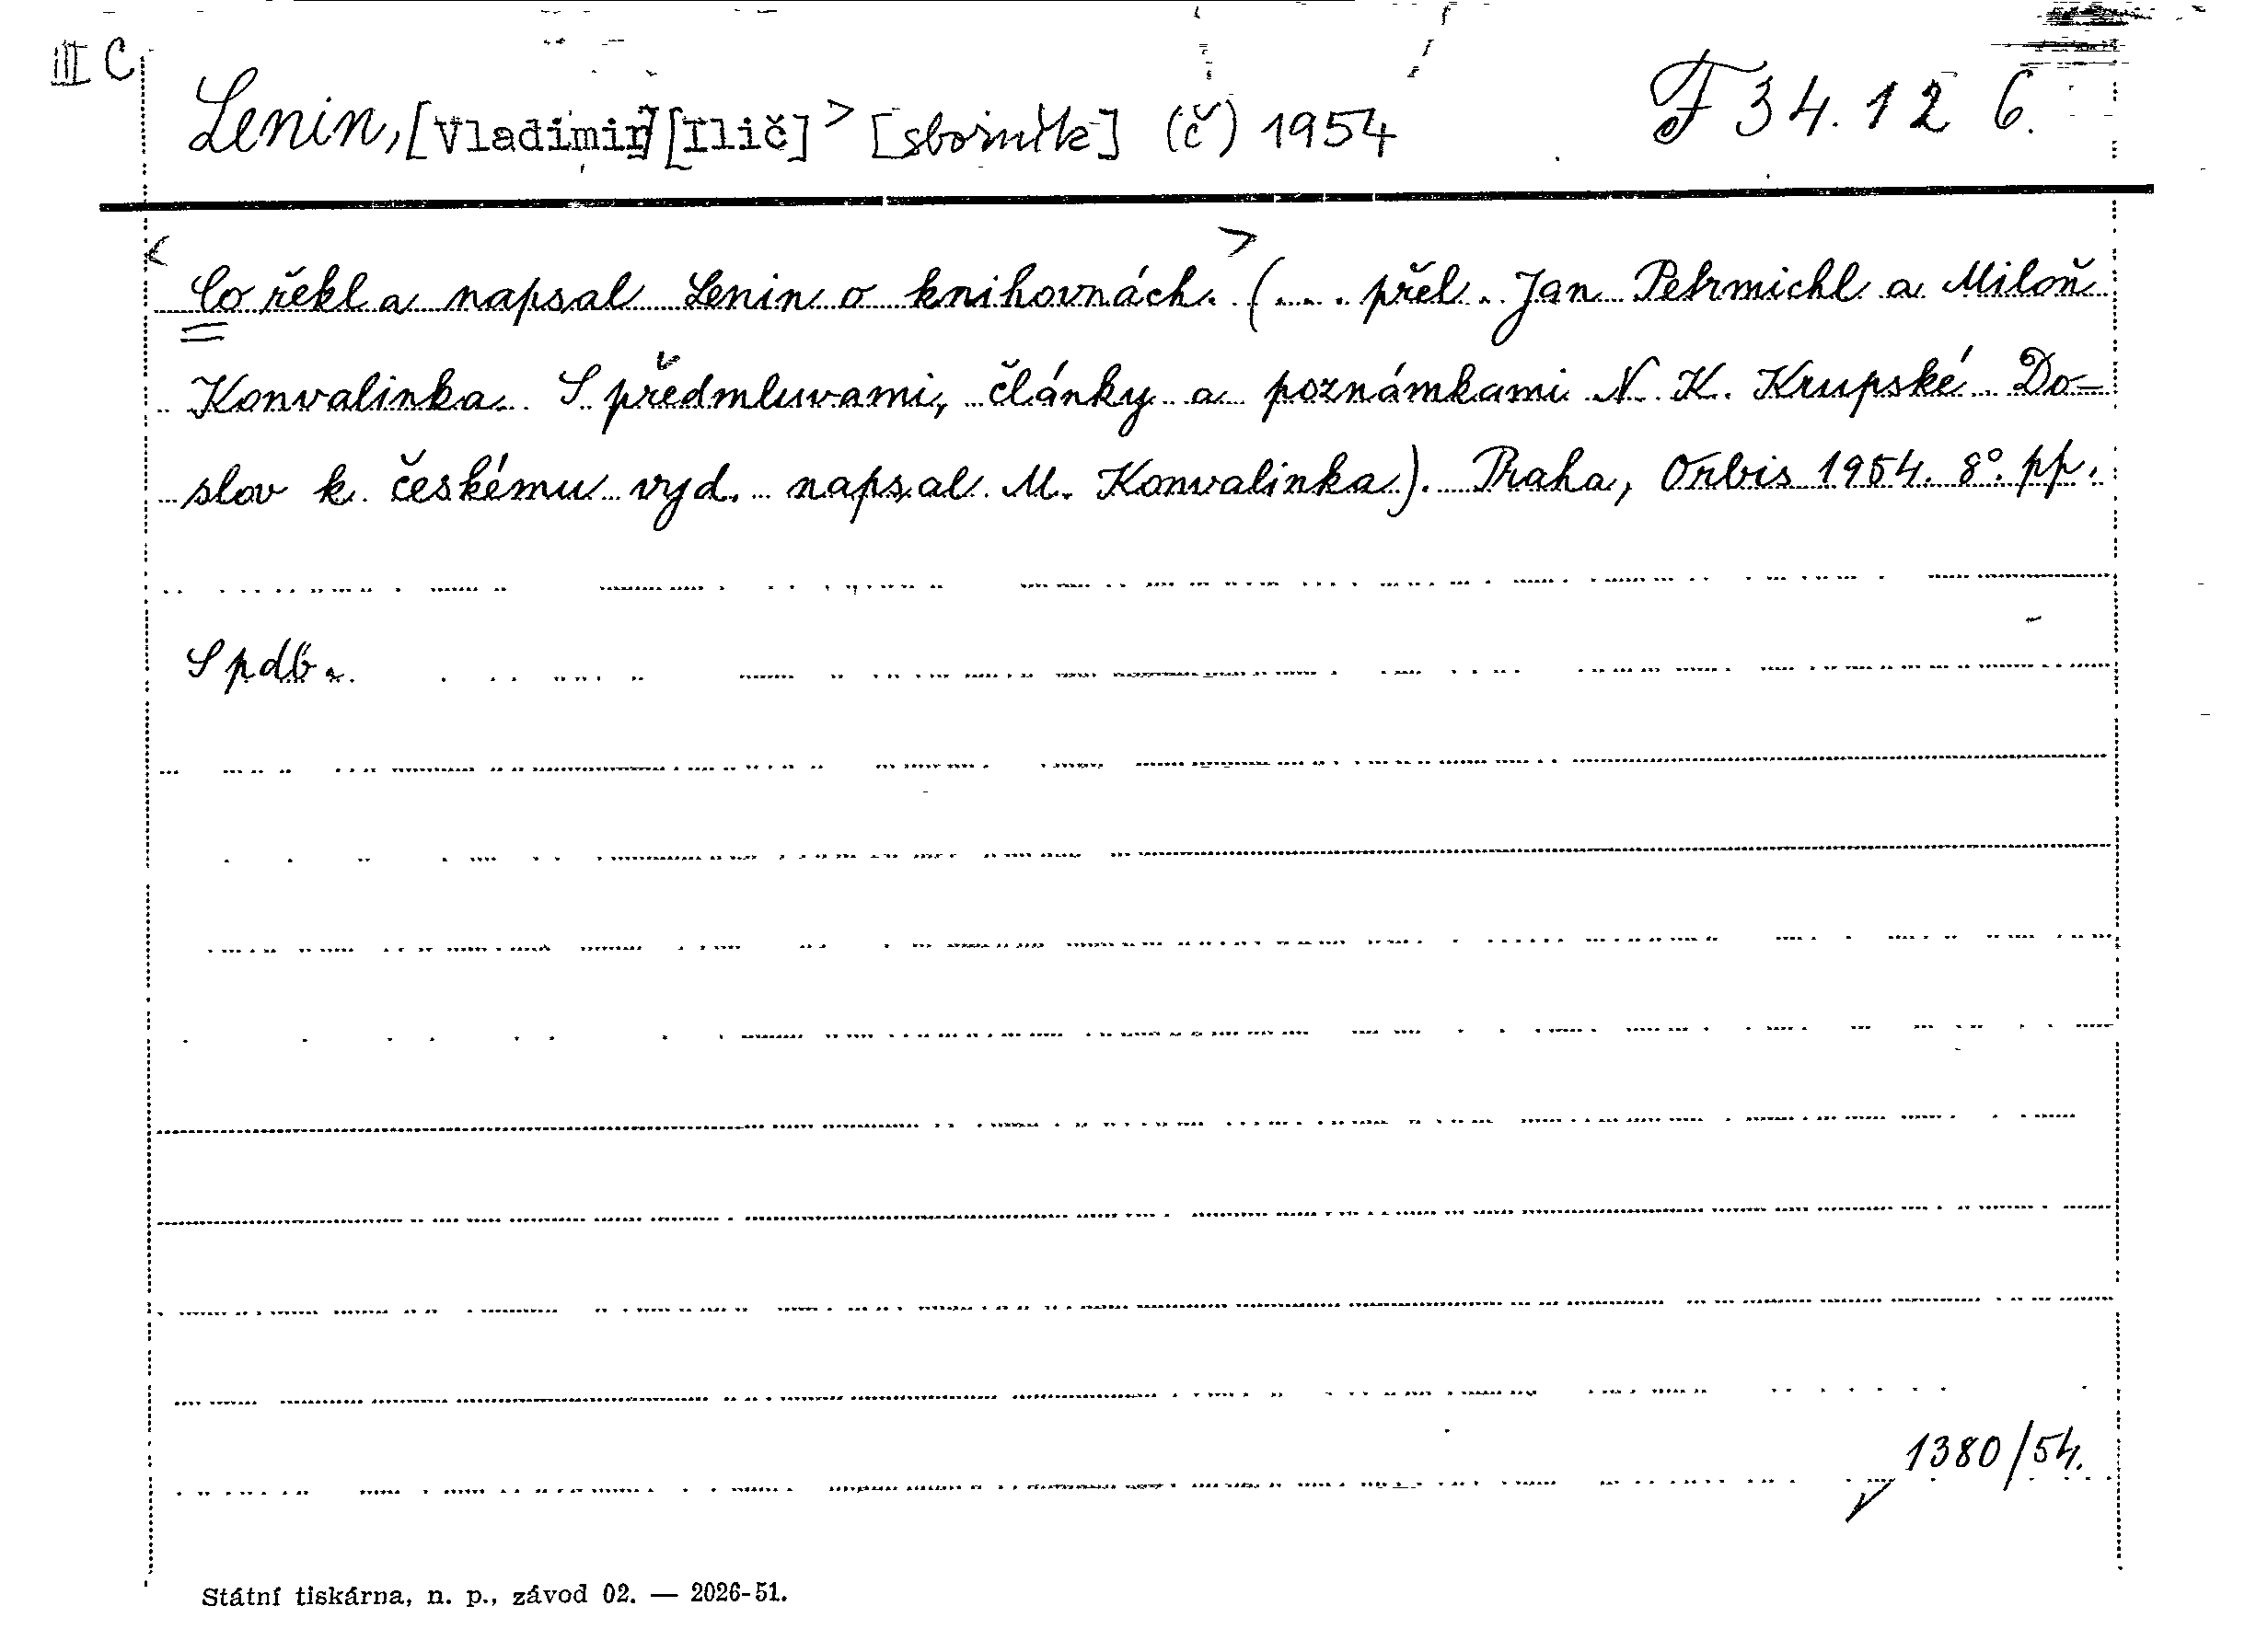 III C
Lenin, [Vladimir] [Ilič] > [sborník] (č) 1954 F 34.126.
< Co řekl a napsal Lenin o knihovnách. > (... přel. Jan Petrmichl a Miloň
Konvalinka. S předmluvami, články a poznámkami N. K. Krupské. Do-
slov k českému vyd. napsal M. Konvalinka). Praha, Orbis 1954. 8°. pp.
S pdb.
1380/54.
Státní tiskárna, n. p., závod 02. — 2026-51.